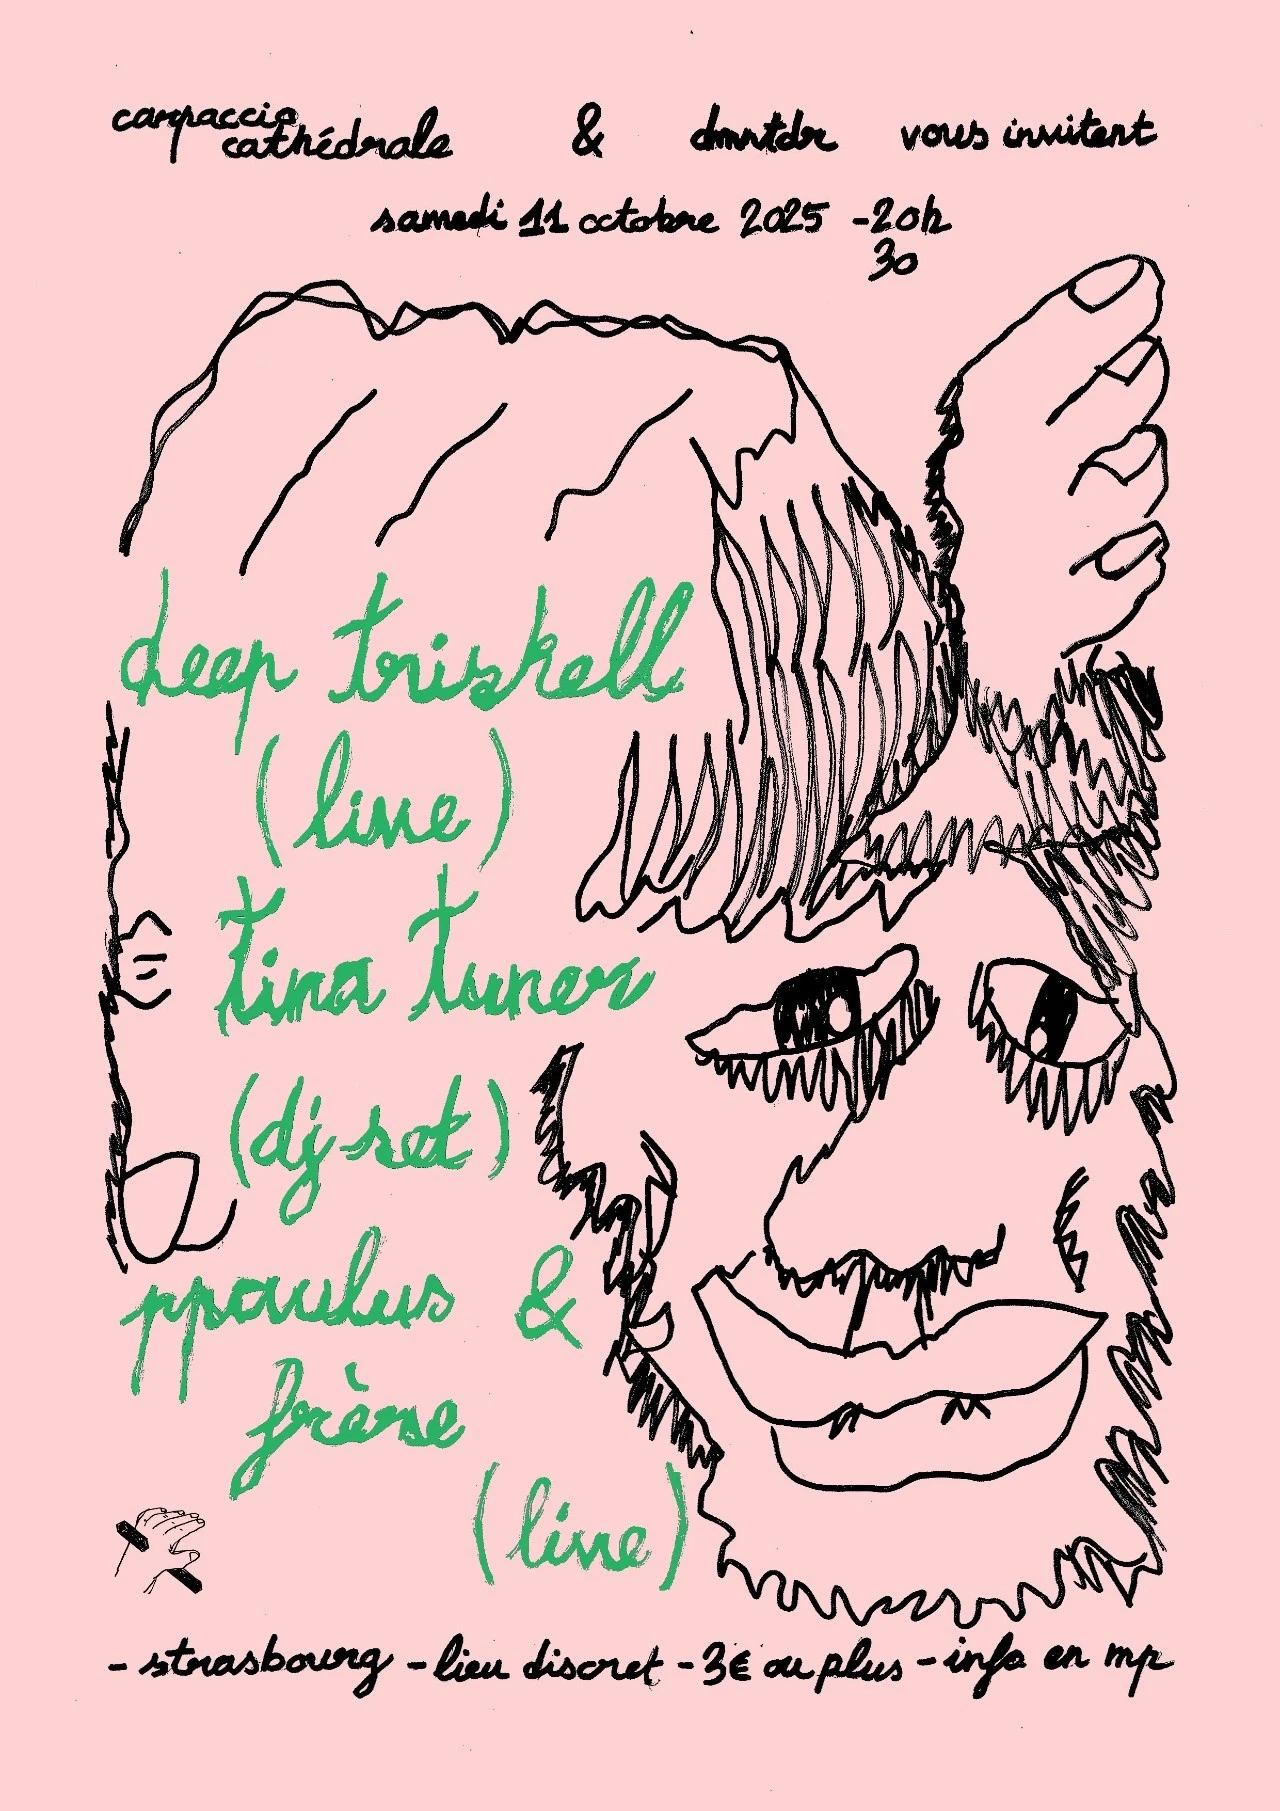 carpaccio
cathédrale & dmntdr vous invitent
samedi 11 octobre 2025 -20h
30
deep triskell
(live)
tina tuner
(dj-set)
ppaulus &
frêne
(live)
- strasbourg - lieu discret - 3€ ou plus - info en mp